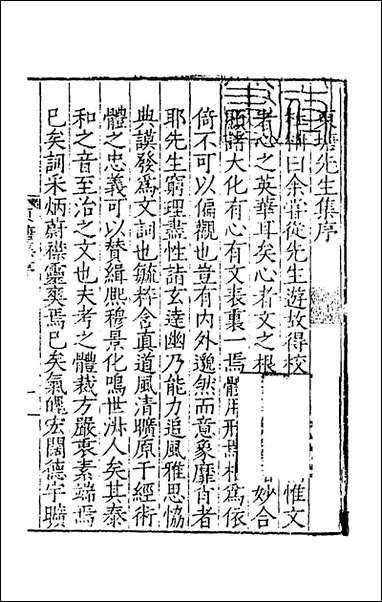 東塘先生集序
曰余嘗從先生遊故得校 惟文
者心之英華耳矣心者文之根 妙合
諸大化有心有文表裏一焉體用形焉相為依
倚不可以偏觀也豈有內外邈然而意象靡肖者
耶先生窮理盡性詣玄達幽乃能力追風雅思恊
典謨發為文詞也毓粹含真道風清曠原于經術
體之忠義可以賛緝熙穆景化鳴世淑人矣其泰
和之音至治之文也夫考之體裁方嚴衷素端焉
已矣詞采炳蔚襟靈爽焉已矣氣魄宏闊德宇曠